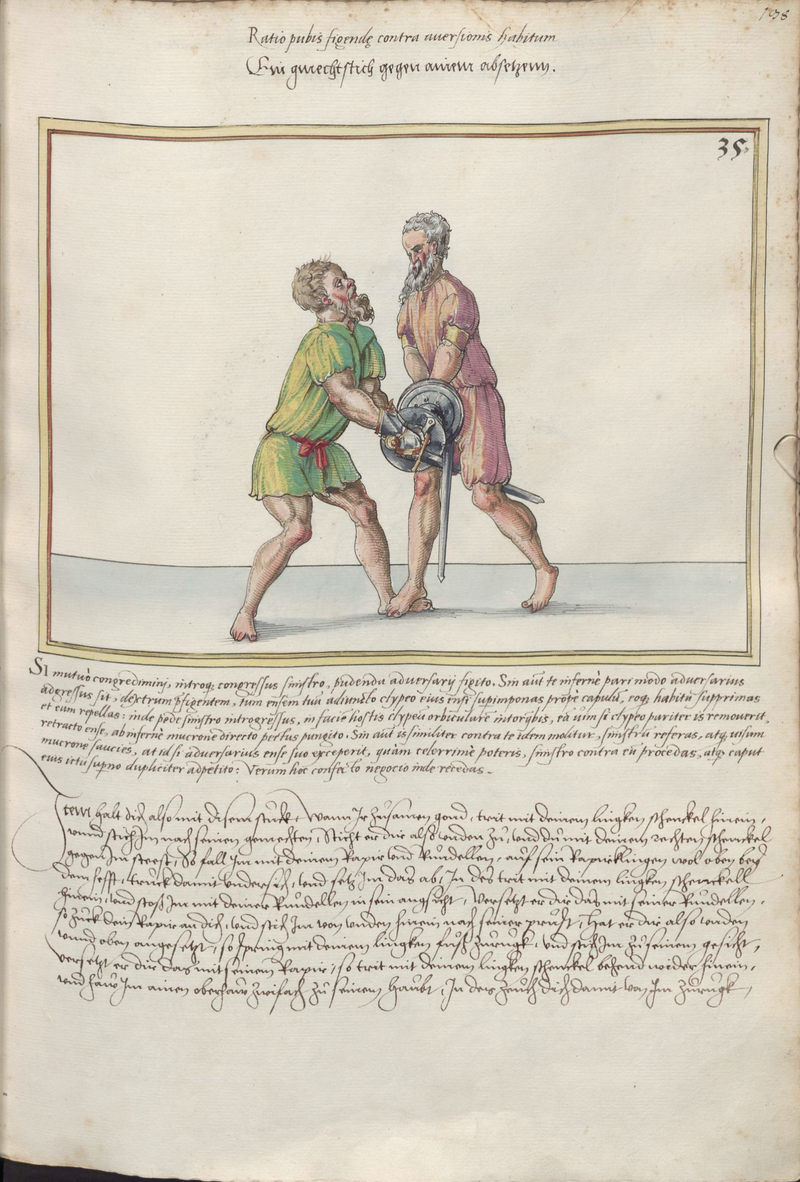 178
Ratio pubis figendę contra aversionis habitum
Ein gmechtstich gegen ainem absetzenn.
35.
Si mutuò congredimini, introq; congressus sinistro, pudenda adversarij figito. Sin aut te infernè pari modo adversarius
adgressus sit, dextrum pfigentem, tum ensem tuũ adiuncto clypeo eius ensi supimponas propè capulũ, eoq; habitu supprimas
et eum repellas: inde pede sinistro introgressus, in faciẽ hostis clypeũ orbiculare intorq̃bis, eà uim si clypeo pariter is removerit,
retracto ense, ab infernè mucrone directo pectus pungito. Sin aut is similiter contra te idem molitur, sinistrũ referas, atq; uisum
mucrone saucies, at id si adversarius ense suo exceperit, quàm celerrimè poteris, sinistro contra eũ procedas, atq; caput
eius ictu supno dupliciter adpetito: Verum hoc confecto negocio inde recedas.
Item halt dich also mit disem stuckh, Wann Ir zusamen gond, trit mit deinem lingken schenckel hinein,
vnnd stich Im nach seinen gemechten, Sticht er dir also vnden zu, vnd du mit deinem rechten schenckel
gegen Im steest, So fall Im mit deinem Rapir vnd Rundellen, auf sein Rapirklingen wol oben bey
dem hefft, truck damit vndersich, vnd setz Im das ab, In des trit mit deinem lingken schenckell
hinein, vnd stoß Im mit deiner Rundellen in sein angsicht, Versetzt er dir das mit seiner Rundellen,
so zuck dein Rapir an dich, vnd stich Im von vnden hinein, nach seiner prust, Hat er dir also vnden
vnnd oben angesetzt, so spring mit deinem lingken fuoß zurugk, vnd stich Im zu seinem gesicht,
versetzt er dir das mit seinem Rapir, so trit mit deinem lingken schenckel behend wider hinein,
vnd haw Im ainen oberhaw zwifach zu seinem haubt, In des zeuch dich damit von Im zurugk,